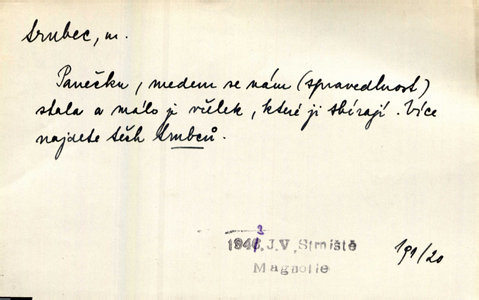 trubec, m.
Panečku, medem se vám (spravedlnost)
stala a málo jí včelek, které ji sbírají. Více
najdete těch trubců.
1943, J.V. Strniště
Magnolie
191/20